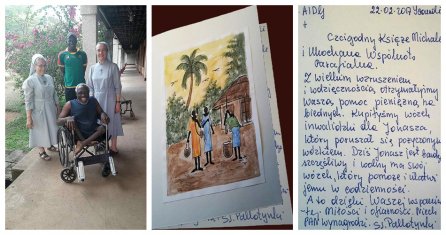 AIDŻJ 22-02-2017 Yaounde
+
Czcigodny Księże Michale
i Kochana Wspólnoto
Parafialna.
Z wielkim wzruszeniem
i wdzięcznością otrzymałyśmy
Waszą pomoc pieniężną na
biednych. Kupiłyśmy wózek
inwalidzki dla Jonasza,
który poruszał się pożyczonym
wózkiem. Dziś Jonasz jest bardzo
szczęśliwy i wolny ma swój
wózek, który pomoże i ułatwi
jemu w codzienności.
A to dzięki Waszej
Miłości i ofiarności. Niech
PAN wynagrodzi. S.S. Pallotynki
S.S. Pallotynki